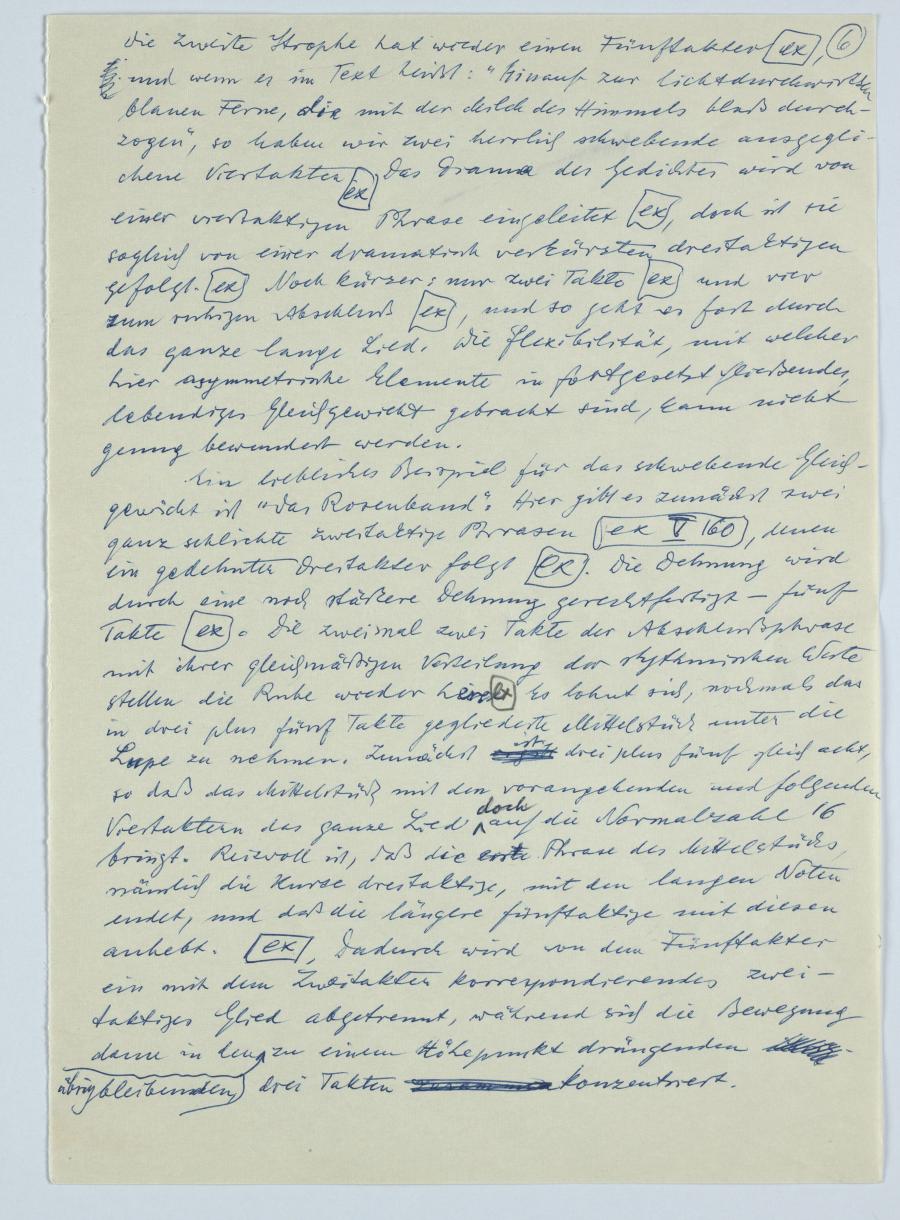 Die zweite Strophe hat wieder einen Fünftakter [ex], (6)
und wenn es im Text heißt: "Hinauf zur lichtdurchwirkten
blauen Ferne, die mit der Milch des Himmels blaß durch-
zogen", so haben wir zwei herrlich schwebende ausgegli-
chene Viertakter [ex] Das Drama des Gedichtes wird von
einer viertaktigen Phrase eingeleitet [ex], doch ist sie
sogleich von einer dramatisch verkürzten dreitaktigen
gefolgt. [ex] Noch kürzer: nur zwei Takte [ex] und vier
zum ruhigen Abschluß [ex], und so geht es fort durch
das ganze lange Lied. Die Flexibilität, mit welcher
hier asymmetrische Elemente in fortgesetzt fließendes,
lebendiges Gleichgewicht gebracht sind, kann nicht
genug bewundert werden.
Ein liebliches Beispiel für das schwebende Gleich-
gewicht ist "Das Rosenband". Hier gibt es zunächst zwei
ganz schlichte zweitaktige Phrasen [ex V 160], denen
ein gedehnter Dreitakter folgt [ex]. Die Dehnung wird
durch eine noch stärkere Dehnung gerechtfertigt – fünf
Takte [ex]. Die zweimal zwei Takte der Abschlußphrase
mit ihrer gleichmäßigen Verteilung der rhythmischen Werte
stellen die Ruhe wieder her [ex] Es lohnt sich, nochmals das
in drei plus fünf Takte gegliederte Mittelstück unter die
Lupe zu nehmen. Zunächst ist drei plus fünf gleich acht,
so daß das Mittelstück mit den vorangehenden und folgenden
Viertaktern das ganze Lied doch auf die Normalzahl 16
bringt. Reizvoll ist, daß die erste Phrase des Mittelstücks,
nämlich die kurze dreitaktige, mit den langen Noten
endet, und daß die längere fünftaktige mit diesen
anhebt. [ex], Dadurch wird von dem Fünftakter
ein mit dem Zweitakter korrespondierendes zwei-
taktiges Glied abgetrennt, während sich die Bewegung
dann in den zu einem Höhepunkt drängenden
übrigbleibenden drei Takten konzentriert.